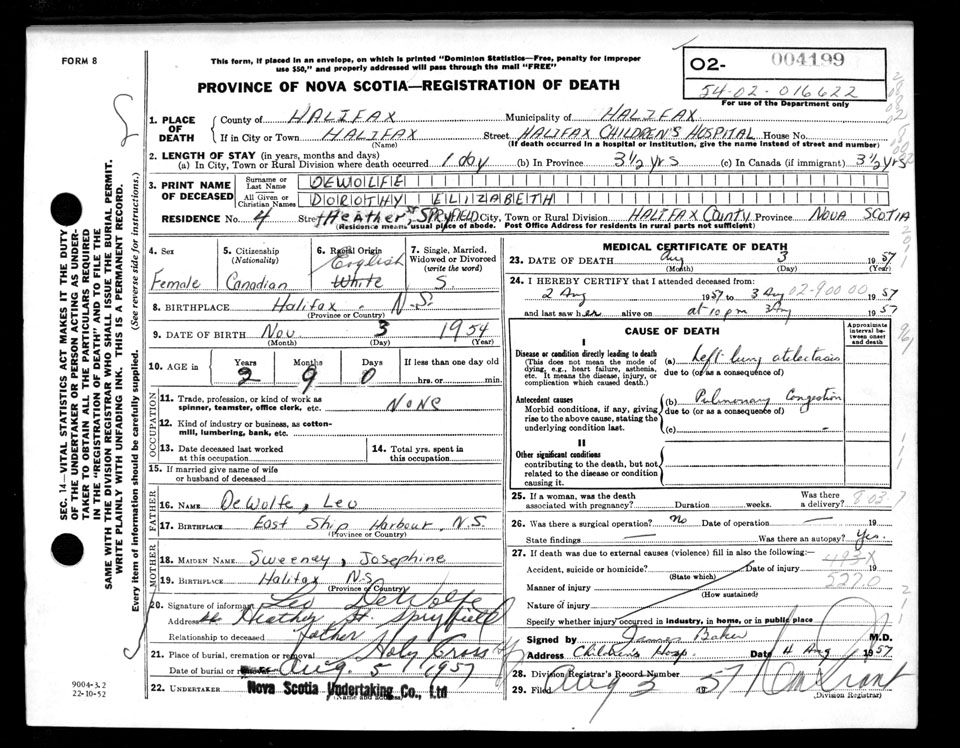 FORM 8
This form, if placed in an envelope, on which is printed "Dominion Statistics—Free, penalty for improper
use $50," and properly addressed will pass through the mail "FREE"
PROVINCE OF NOVA SCOTIA—REGISTRATION OF DEATH
02- 004199
54-02-016622
For use of the Department only
1. PLACE OF DEATH
County of HALIFAX Municipality of HALIFAX
If in City or Town HALIFAX Street HALIFAX CHILDREN'S HOSPITAL House No.
(Name) (If death occurred in a hospital or institution, give the name instead of street and number)
2. LENGTH OF STAY (in years, months and days)
(a) In City, Town or Rural Division where death occurred 1 day (b) In Province 3½ yrs (c) In Canada (if immigrant) 3½ yrs
3. PRINT NAME OF DECEASED
Surname or Last Name DEWOLFE
All Given or Christian Names DOROTHY ELIZABETH
RESIDENCE No. 4 Street Heather St SPRYFIELD City, Town or Rural Division HALIFAX County Province NOVA SCOTIA
(Residence means usual place of abode. Post Office Address for residents in rural parts not sufficient)
4. Sex
Female
5. Citizenship (Nationality)
Canadian
6. Racial Origin
English
White
7. Single, Married, Widowed or Divorced (write the word)
S.
8. BIRTHPLACE Halifax - N-S.
(Province or Country)
9. DATE OF BIRTH Nov 3 1954
(Month) (Day) (Year)
10. AGE in
Years Months Days If less than one day old
2 9 0 hrs. or min.
OCCUPATION
11. Trade, profession, or kind of work as
spinner, teamster, office clerk, etc. NONE
12. Kind of industry or business, as cotton-
mill, lumbering, bank, etc.
13. Date deceased last worked
at this occupation
14. Total yrs. spent in
this occupation
15. If married give name of wife
or husband of deceased
FATHER
16. NAME DeWolfe, Leo
17. BIRTHPLACE East Ship Harbour, N.S.
(Province or Country)
MOTHER
18. MAIDEN NAME Sweeney, Josephine
19. BIRTHPLACE Halifax N.S
(Province or Country)
20. Signature of informant Leo DeWolfe
Address Heather St. Spryfield
Relationship to deceased father
21. Place of burial, cremation or removal Holy Cross
Date of burial or Aug 5 1957
22. UNDERTAKER Nova Scotia Undertaking Co., Ltd
(Name and address)
MEDICAL CERTIFICATE OF DEATH
23. DATE OF DEATH Aug 3 1957
(Month) (Day) (Year)
24. I HEREBY CERTIFY that I attended deceased from:
2 Aug 1957 to 3 Aug 02-90000 1957
and last saw her alive on at 10 pm 3 Aug 1957
CAUSE OF DEATH
Approximate interval between onset and death
I
Disease or condition directly leading to death
(This does not mean the mode of
dying, e.g., heart failure, asthenia,
etc. It means the disease, injury, or
complication which caused death.)
(a) Left lung atelectasis
due to (or as a consequence of)
Antecedent causes
Morbid conditions, if any, giving
rise to the above cause, stating the
underlying condition last.
(b) Pulmonary Congestion
due to (or as a consequence of)
(c) -
II
Other significant conditions
contributing to the death, but not
related to the disease or condition
causing it.
25. If a woman, was the death
associated with pregnancy? Duration weeks. Was there a delivery? 803-7
26. Was there a surgical operation? No Date of operation — 19
State findings — Was there an autopsy? Yes.
27. If death was due to external causes (violence) fill in also the following:—
493X
Accident, suicide or homicide? Date of injury 19
(State which)
5270
Manner of injury
(How sustained)
Nature of injury
Specify whether injury occurred in industry, in home, or in public place
Signed by James Baker M.D.
Address Children's Hosp. Date 4 Aug 1957
28. Division Registrar's Record Number
29. Filed Aug 3 1957
(Division Registrar)
SEC. 14—VITAL STATISTICS ACT MAKES IT THE DUTY
OF THE UNDERTAKER OR PERSON ACTING AS UNDER-
TAKER TO OBTAIN ALL THE PARTICULARS REQUIRED
IN THE "REGISTRATION OF DEATH" AND TO FILE THE
SAME WITH THE DIVISION REGISTRAR WHO SHALL ISSUE THE BURIAL PERMIT.
WRITE PLAINLY WITH UNFADING INK. THIS IS A PERMANENT RECORD.
Every item of information should be carefully supplied. (See reverse side for instructions.)
9004-3.2
22-10-52